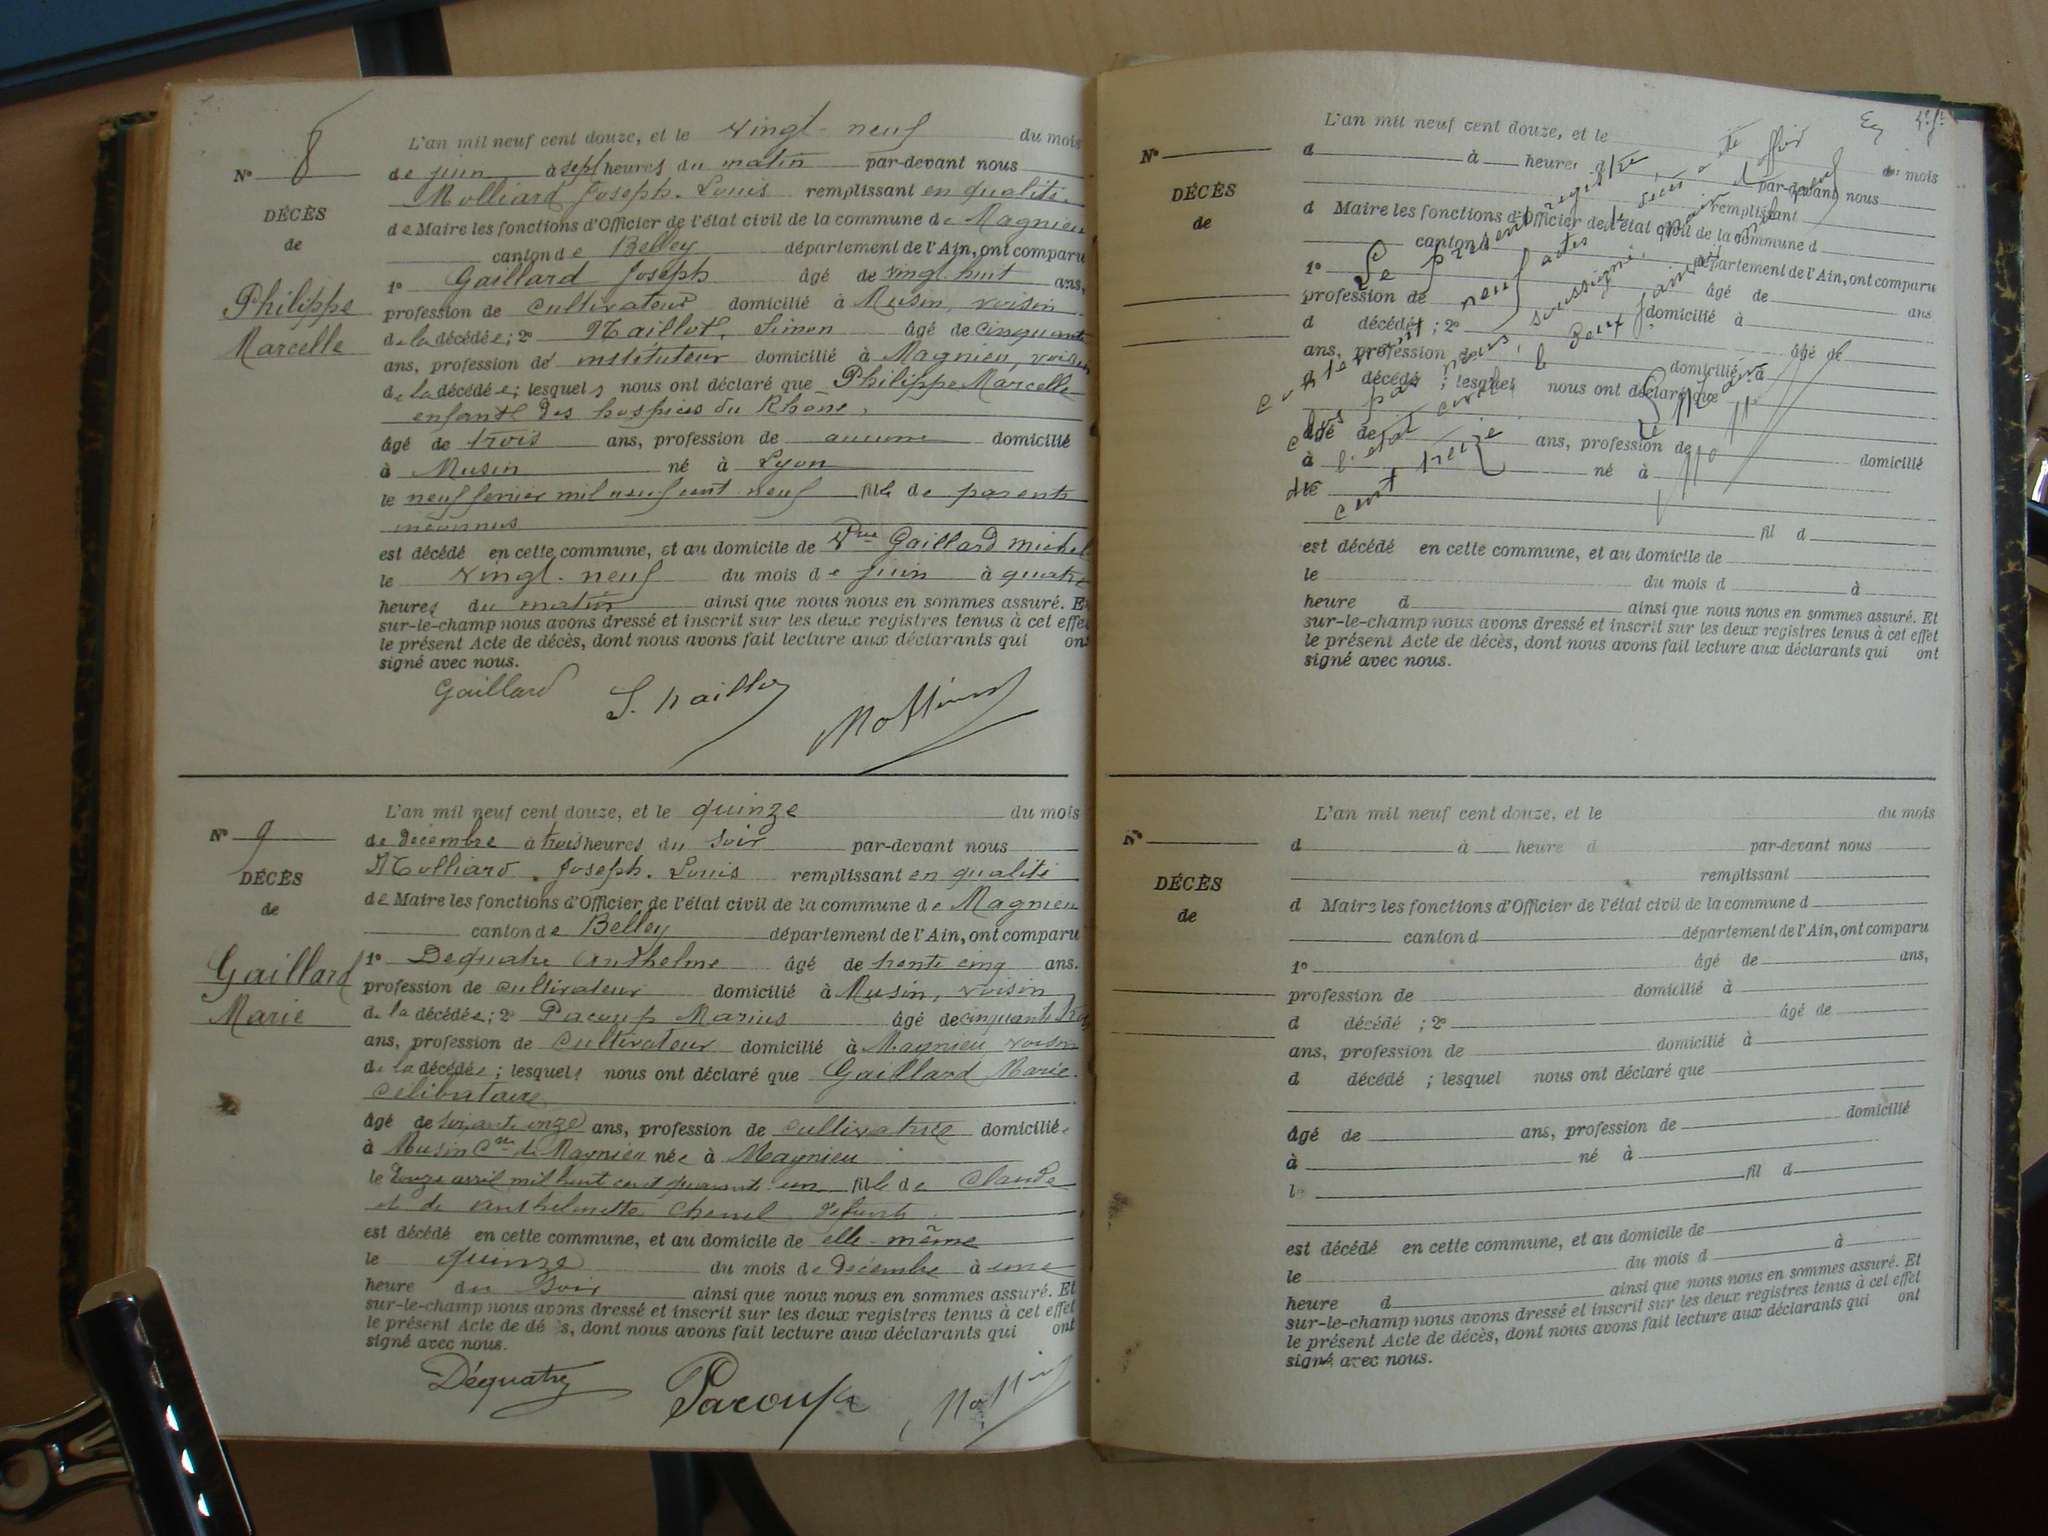 L'an mil neuf cent douze, et le vingt-neuf du mois
N° 8
de juin à sept heures du matin par-devant nous
Molliard Joseph-Louis remplissant en qualité
DÉCÈS
de Maire les fonctions d'Officier de l'état civil de la commune de Magnieu
de
canton de Belley département de l'Ain, ont comparu
1° Gaillard Joseph âgé de vingt huit ans,
Philippe
profession de cultivateur domicilié à Musin, voisin
Marcelle
de la décédée ; 2° Maillot, Simon âgé de cinquante
ans, profession de instituteur domicilié à Magnieu, voisin
de la décédée ; lesquels nous ont déclaré que Philippe Marcelle
enfant des hospices du Rhône,
âgé de trois ans, profession de aucune domicilié
à Musin né à Lyon
le neuf février mil neuf cent neuf fille de parents
inconnus
est décédé en cette commune, et au domicile de Vve Gaillard Michel
le vingt-neuf du mois de juin à quatre
heures du matin ainsi que nous nous en sommes assuré. Et
sur-le-champ nous avons dressé et inscrit sur les deux registres tenus à cet effet
le présent Acte de décès, dont nous avons fait lecture aux déclarants qui ont
signé avec nous.
Gaillard S. Maillot Molliard
L'an mil neuf cent douze, et le quinze du mois
N° 9
de décembre à trois heures du soir par-devant nous
Molliard Joseph-Louis remplissant en qualité
DÉCÈS
de Maire les fonctions d'Officier de l'état civil de la commune de Magnieu
de
canton de Belley département de l'Ain, ont comparu
Gaillard
1° Dequatre Anthelme âgé de trente cinq ans.
profession de cultivateur domicilié à Musin, voisin
Marie
de la décédée ; 2° Pacoup Marius âgé de cinquante trois
ans, profession de cultivateur domicilié à Magnieu voisin
de la décédée ; lesquels nous ont déclaré que Gaillard Marie
célibataire
âgé de soixante onze ans, profession de cultivatrice domiciliée
à Musin Cne de Magnieu née à Magnieu
le douze avril mil huit cent quarante un fille de Claude
et de Anthelmette Chenel défunts
est décédé en cette commune, et au domicile de elle-même
le quinze du mois de décembre à une
heure du soir ainsi que nous nous en sommes assuré. Et
sur-le-champ nous avons dressé et inscrit sur les deux registres tenus à cet effet
le présent Acte de décès, dont nous avons fait lecture aux déclarants qui ont
signé avec nous.
Déquatre Pacoup Molliard
L'an mil neuf cent douze, et le du mois
N°
d à heures d par-devant nous
remplissant
DÉCÈS
d Maire les fonctions d'Officier de l'état civil de la commune d
de
canton d département de l'Ain, ont comparu
1° âgé de ans
profession de domicilié à
d décédé ; 2° âgé de
ans, profession de domicilié à
d décédé ; lesquels nous ont déclaré que
âgé de ans, profession de domicilié
à né à
le
fil d
est décédé en cette commune, et au domicile de
le du mois d à
heure d ainsi que nous nous en sommes assuré. Et
sur-le-champ nous avons dressé et inscrit sur les deux registres tenus à cet effet
le présent Acte de décès, dont nous avons fait lecture aux déclarants qui ont
signé avec nous.
Le présent registre
contenant neuf actes de décès a été
clos par nous, soussigné, maire et officier
de l'état civil, le premier janvier mil neuf
cent treize
Le Maire
L'an mil neuf cent douze, et le du mois
N°
d à heure d par-devant nous
remplissant
DÉCÈS
d Maire les fonctions d'Officier de l'état civil de la commune d
de
canton d département de l'Ain, ont comparu
1° âgé de ans,
profession de domicilié à
d décédé ; 2° âgé de
ans, profession de domicilié à
d décédé ; lesquel nous ont déclaré que
âgé de ans, profession de domicilié
à né à
le fil d
est décédé en cette commune, et au domicile de
le du mois d à
heure d ainsi que nous nous en sommes assuré. Et
sur-le-champ nous avons dressé et inscrit sur les deux registres tenus à cet effet
le présent Acte de décès, dont nous avons fait lecture aux déclarants qui ont
signé avec nous.